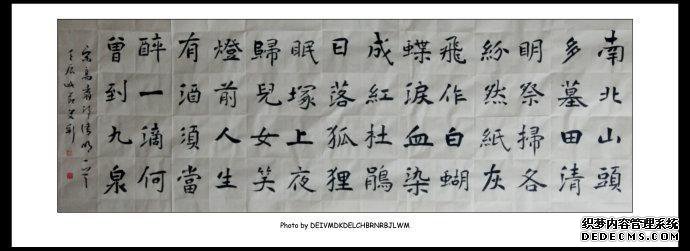 南北山頭
多墓田清
明祭掃各
紛然紙灰
飛作白蝴
蝶淚血染
成紅杜鵑
日落狐狸
眠塚上夜
歸兒女笑
燈前人生
有酒須當
醉一滴何
曾到九泉
宋高翥詩清明一首
Photo by DEIVMDKDELCHBRNRBJLWM.
织梦内容管理系统
DEDECMS.COM